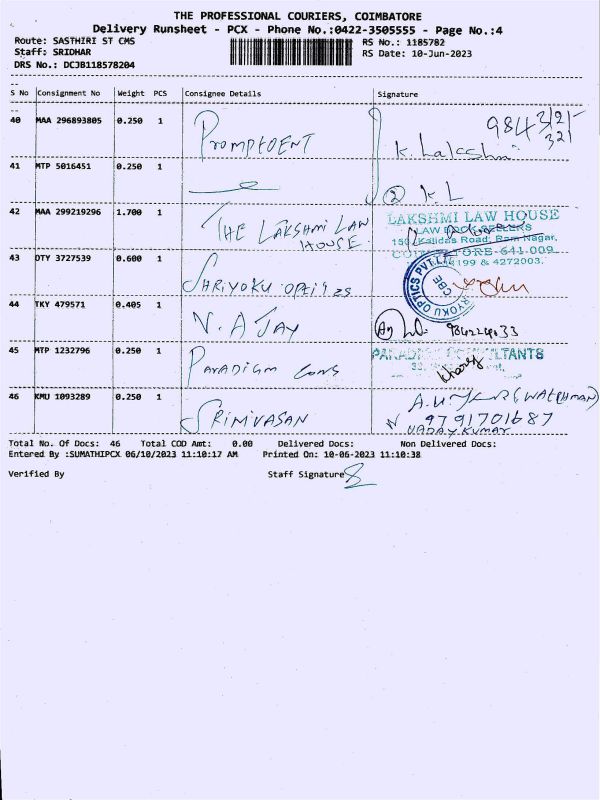 THE PROFESSIONAL COURIERS, COIMBATORE
Delivery Runsheet - PCX - Phone No.:0422-3505555 - Page No.:4
Route: SASTHIRI ST CMS
RS No.: 1185782
Staff: SRIDHAR
RS Date: 10-Jun-2023
DRS No.: DCJB118578204
S No Consignment No Weight PCS Consignee Details Signature
40 MAA 296893805 0.250 1 PromptDENT K Lakshmi
41 MTP 5016451 0.250 1 2 K.L
42 MAA 299219296 1.700 1 THE LAKSHMI LAW HOUSE
LAKSHMI LAW HOUSE
LAW BOOK SELLERS
150, Kalidas Road, Ram Nagar,
COIMBATORE-641 009
4199 & 4272003.
43 DTY 3727539 0.600 1 SHRIYOKU OPTICS
OPTICS PVT.LTD
CBE
44 TKY 479571 0.405 1 N. AJAY
45 MTP 1232796 0.250 1 PARADIGM CONS
46 KMU 1093289 0.250 1 SRINIVASAN (WATCHMAN)
9791701687
UADAY KUMAR
Total No. Of Docs: 46 Total COD Amt: 0.00 Delivered Docs: Non Delivered Docs:
Entered By :SUMATHIPCX 06/10/2023 11:10:17 AM Printed On: 10-06-2023 11:10:38
Verified By Staff Signature